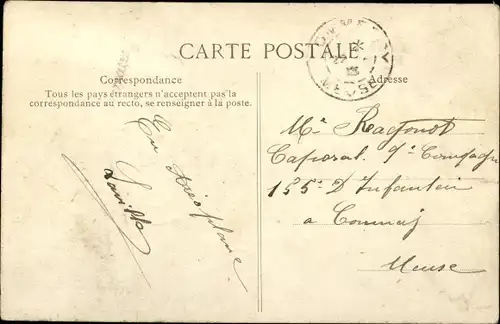 CARTE POSTALE
Correspondance
Tous les pays étrangers n'acceptent pas la
correspondance au recto, se renseigner à la poste.
Adresse
MEUSE
En Aéroplane
Mr Ragonot
Caporal 9e Compagnie
155e D'Infanterie
a Commercy
Meuse